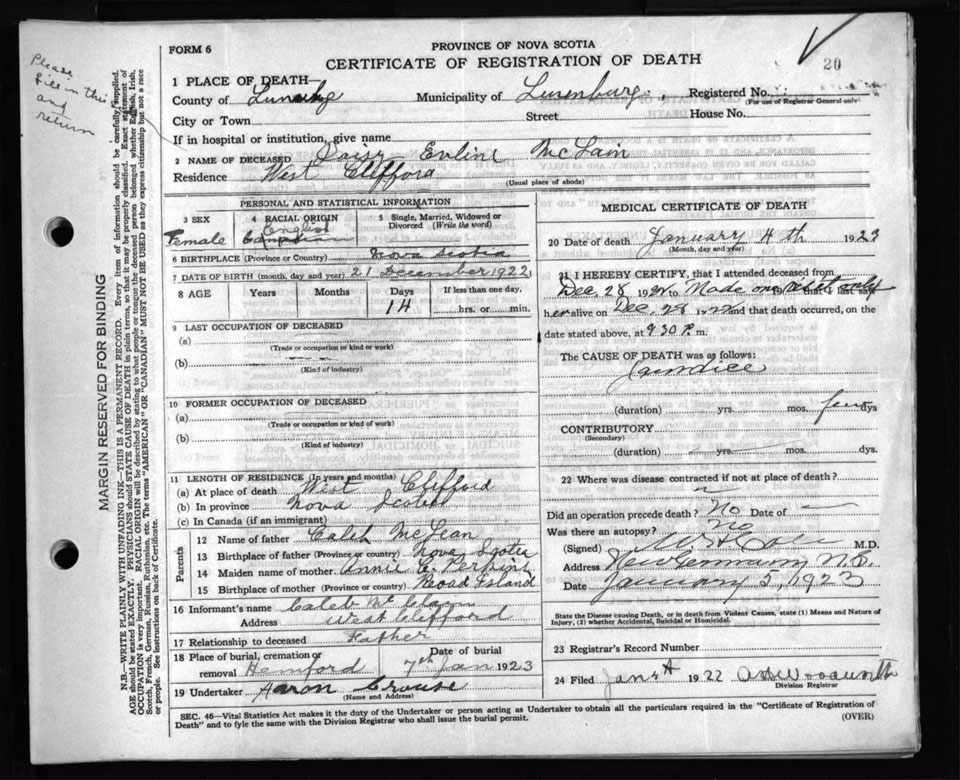 Please
fill in this
and
return
FORM 6
PROVINCE OF NOVA SCOTIA
CERTIFICATE OF REGISTRATION OF DEATH
20
1 PLACE OF DEATH—
County of Municipality of Lunenburg Registered No.
(For use of Registrar General only)
City or Town Street House No.
If in hospital or institution, give name
2 NAME OF DECEASED Daisy Evline McLain
Residence West Clifford
(Usual place of abode)
PERSONAL AND STATISTICAL INFORMATION
3 SEX
Female
4 RACIAL ORIGIN
English
Canadian
5 Single, Married, Widowed or Divorced (Write the word)
6 BIRTHPLACE (Province or Country) Nova Scotia
7 DATE OF BIRTH (month, day and year) 21 December 1922
8 AGE Years Months Days If less than one day.
14 hrs. or min.
9 LAST OCCUPATION OF DECEASED
(a)
(Trade or occupation or kind or work)
(b)
(Kind of industry)
10 FORMER OCCUPATION OF DECEASED
(a)
(Trade or occupation or kind of work)
(b)
(Kind of industry)
11 LENGTH OF RESIDENCE (In years and months)
(a) At place of death West Clifford
(b) In province Nova Scotia
(c) In Canada (if an immigrant)
Parents
12 Name of father Caleb McLean
13 Birthplace of father (Province or country) Nova Scotia
14 Maiden name of mother Annie E. Perkins
15 Birthplace of mother (Province or country) Road Island
16 Informant's name Caleb
Address West Clifford
17 Relationship to deceased Father
18 Place of burial, cremation or removal Hemford
Date of burial
7th Jan 1923
19 Undertaker Aaron Crouse
(Name and Address)
MEDICAL CERTIFICATE OF DEATH
20 Date of death January 4th 1923
(Month, day and year)
21 I HEREBY CERTIFY, that I attended deceased from
Dec. 28 19 to Made one visit only that I last saw
her alive on Dec. 28 1922 and that death occurred, on
date stated above, at 9.30 P. m.
The CAUSE OF DEATH was as follows:
Jaundice
(duration) yrs. mos. few dys
CONTRIBUTORY
(Secondary)
(duration) yrs. mos. dys.
22 Where was disease contracted if not at place of death?
Did an operation precede death? No Date of —
Was there an autopsy? No
(Signed) M.D.
Address New Germany N.S.
Date January 1923
State the Disease causing Death, or in death from Violent Causes, state (1) Means and Nature of
Injury, (2) whether Accidental, Suicidal or Homicidal.
23 Registrar's Record Number
24 Filed Jan 1922 Woodworth
Division Registrar
SEC. 46—Vital Statistics Act makes it the duty of the Undertaker or person acting as Undertaker to obtain all the particulars required in the "Certificate of Registration of
Death" and to fyle the same with the Division Registrar who shall issue the burial permit.
(OVER)
MARGIN RESERVED FOR BINDING
N.B.—WRITE PLAINLY WITH UNFADING INK—THIS IS A PERMANENT RECORD. Every item of information should be carefully supplied.
AGE should be stated EXACTLY. PHYSICIANS should STATE CAUSE OF DEATH in plain terms, so that it may be properly classified. Exact statement of
OCCUPATION is very important. RACIAL ORIGIN will be described by stating to what people or tongue the deceased person belonged whether English, Irish,
Scotch, French, German, Russian, Ruthenian, etc. The terms "AMERICAN" OR "CANADIAN" MUST NOT BE USED as they express citizenship but not a race
or people. See instructions on back of Certificate.